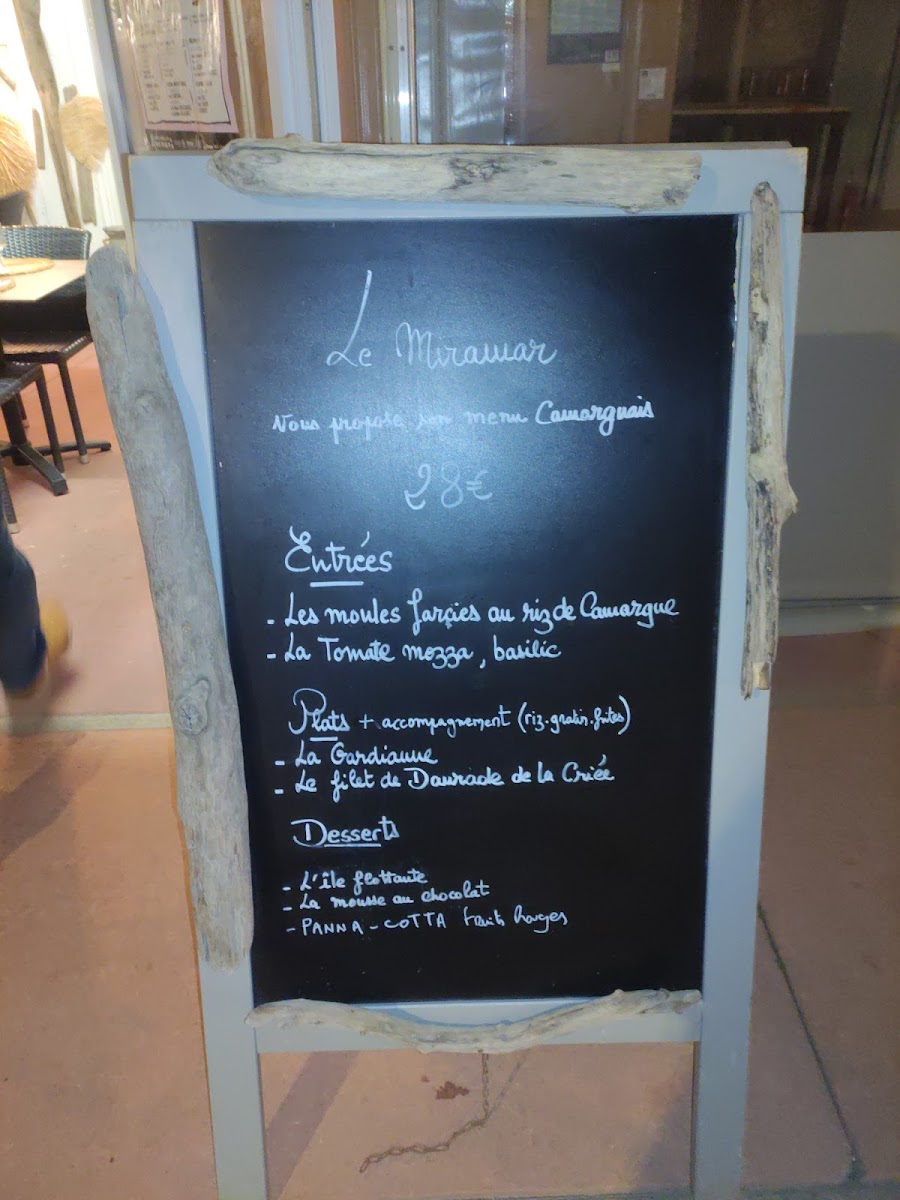 Le Miramar
Nous propose son menu Camarguais
28€
Entrées
- Les moules farçies au riz de Camargue
- La Tomate mozza, basilic
Plats + accompagnement (riz.gratin.frites)
- La Gardianne
- Le filet de Daurade de la Criée
Desserts
- L'île flottante
- La mousse au chocolat
- PANNA-COTTA fruits Rouges